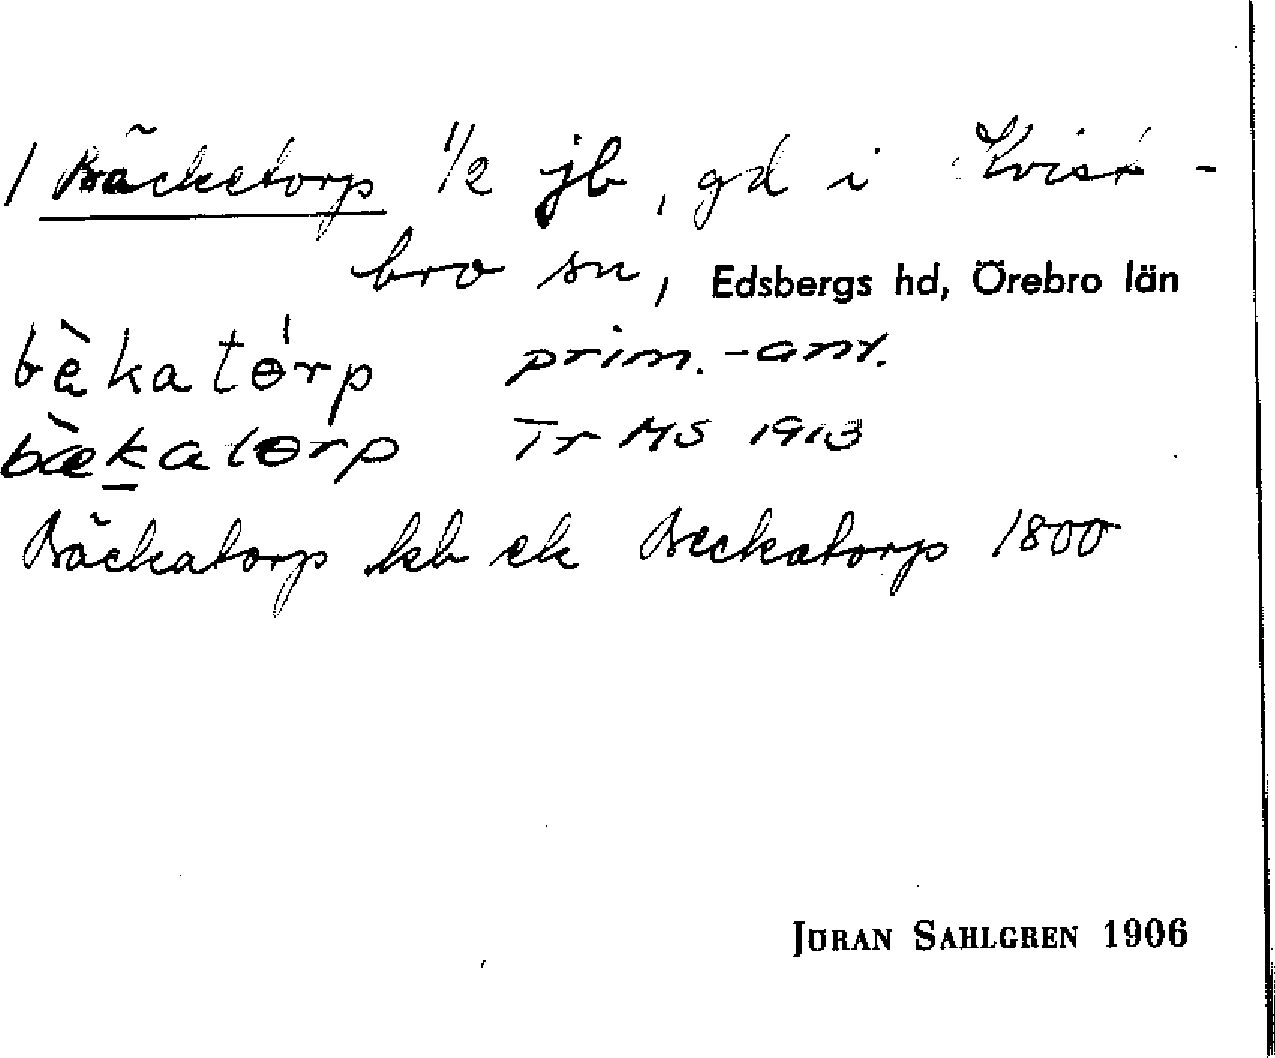 1 Bäcketorp 1/2 jb, gd i Kvist-
bro sn, Edsbergs hd, Örebro län
bèkatɵ́rp prim.-anv.
bæ̀katɵrp Tr MS 1913
Bäckatorp kb ek Beckatorp 1800
JÖRAN SAHLGREN 1906